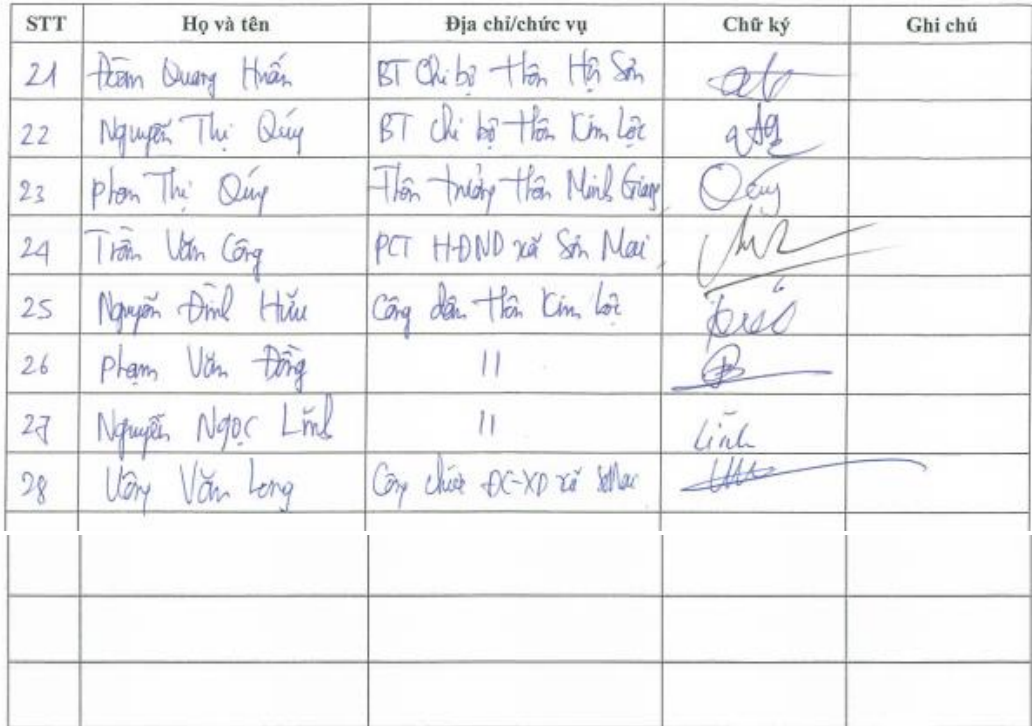 STT Họ và tên Địa chỉ/chức vụ Chữ ký Ghi chú
21 Quang Huấn BT Chi bộ thôn Sơn
22 Nguyễn Thị Qúy BT chi bộ thôn Kim Lộc
23 Phan Thị Qúy Thôn trưởng thôn Minh Giang Qúy
24 Trần Văn Công PCT HĐND xã Sơn Mai
25 Nguyễn Đình Hữu Công dân thôn Kim Lộc
26 Phạm Văn Đồng 11
27 Nguyễn Ngọc Lĩnh 11 Lĩnh
28 Văn Long Công chức ĐC-XD xã